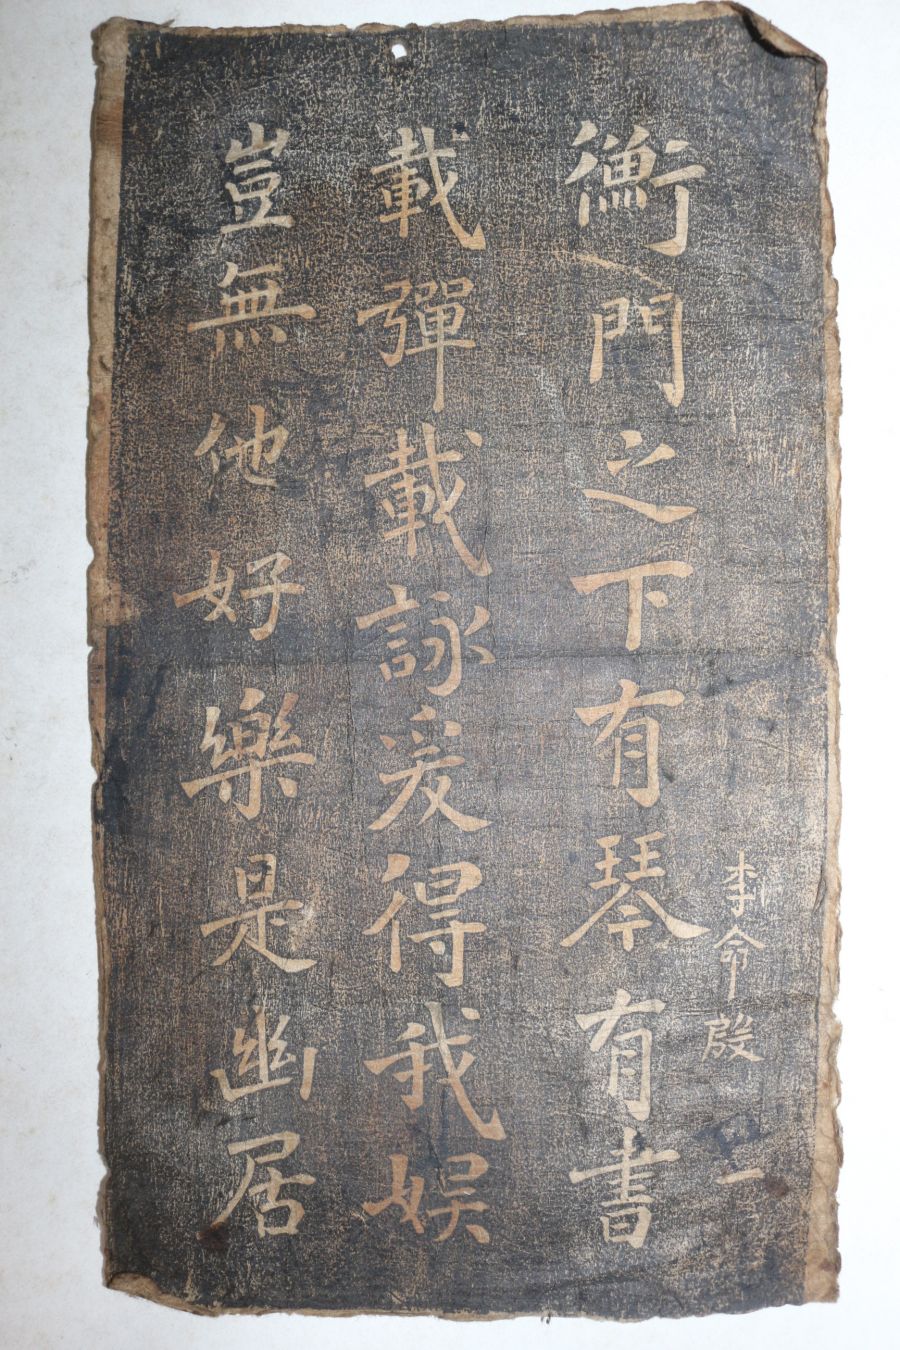 李命殷
一
衡門之下有琴有書
載彈載詠爰得我娛
豈無他好樂是幽居